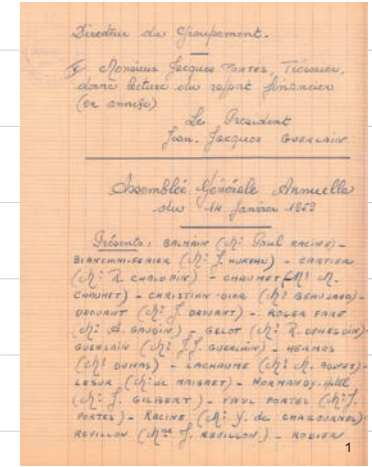 Directeur du Groupement.
Monsieur Jacques PORTES, Trésorier,
donne lecture du rapport financier
(en annexe)
Le President
Jean-Jacques GUERLAIN
Assemblée Générale Annuelle
du 14 Janvier 1963
Présents: BALMAIN (Mr Paul RACINE) -
BIANCHINI-FERIER (Mr J. HUREAU) - CARTIER
(Mr R. CHALOPIN) - CHAUMET (Mr M.
CHAUMET) - CHRISTIAN-DIOR (Mr BEAUJARD) -
DROUANT (Mr J. DROUANT) - ROGER FARE
(Mr A. GAUDIN) - GELOT (Mr R. DENESDIN)
GUERLAIN (Mr J.J. GUERLAIN) - HERMES
(Mr DUMAS) - LACHAUME (Mr M. AGNES) -
LESUR (Mr de MAIGRET) - NORMANDY-Hôtel
(Mr J. GILBERT) - PAUL PORTES (Mr J.
PORTES) - RACINE (Mr Y. de CHAZOURNES)
REVILLON (Mme J. REVILLON) - RODIER
1